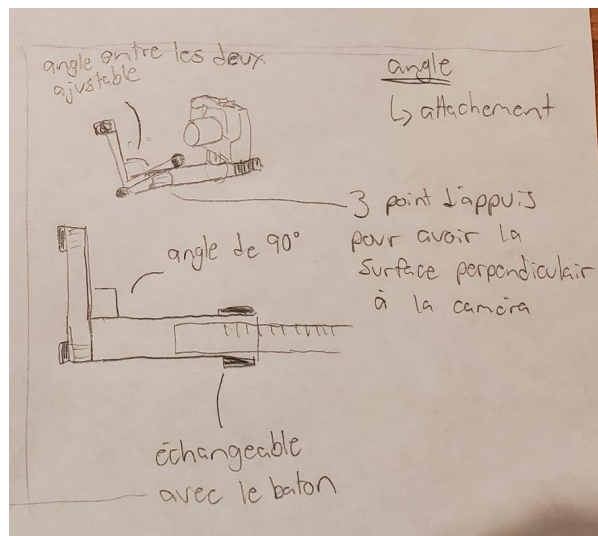 angle entre les deux
ajustable
angle
↳ attachement
3 point d'appuis
pour avoir la
surface perpendiculair
à la caméra
angle de 90°
échangeable
avec le baton